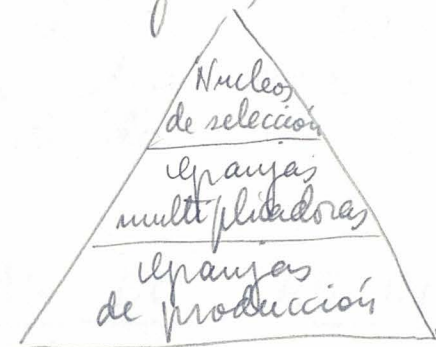 Nucleos
de selección
Granjas
multiplicadoras
Granjas
de producción